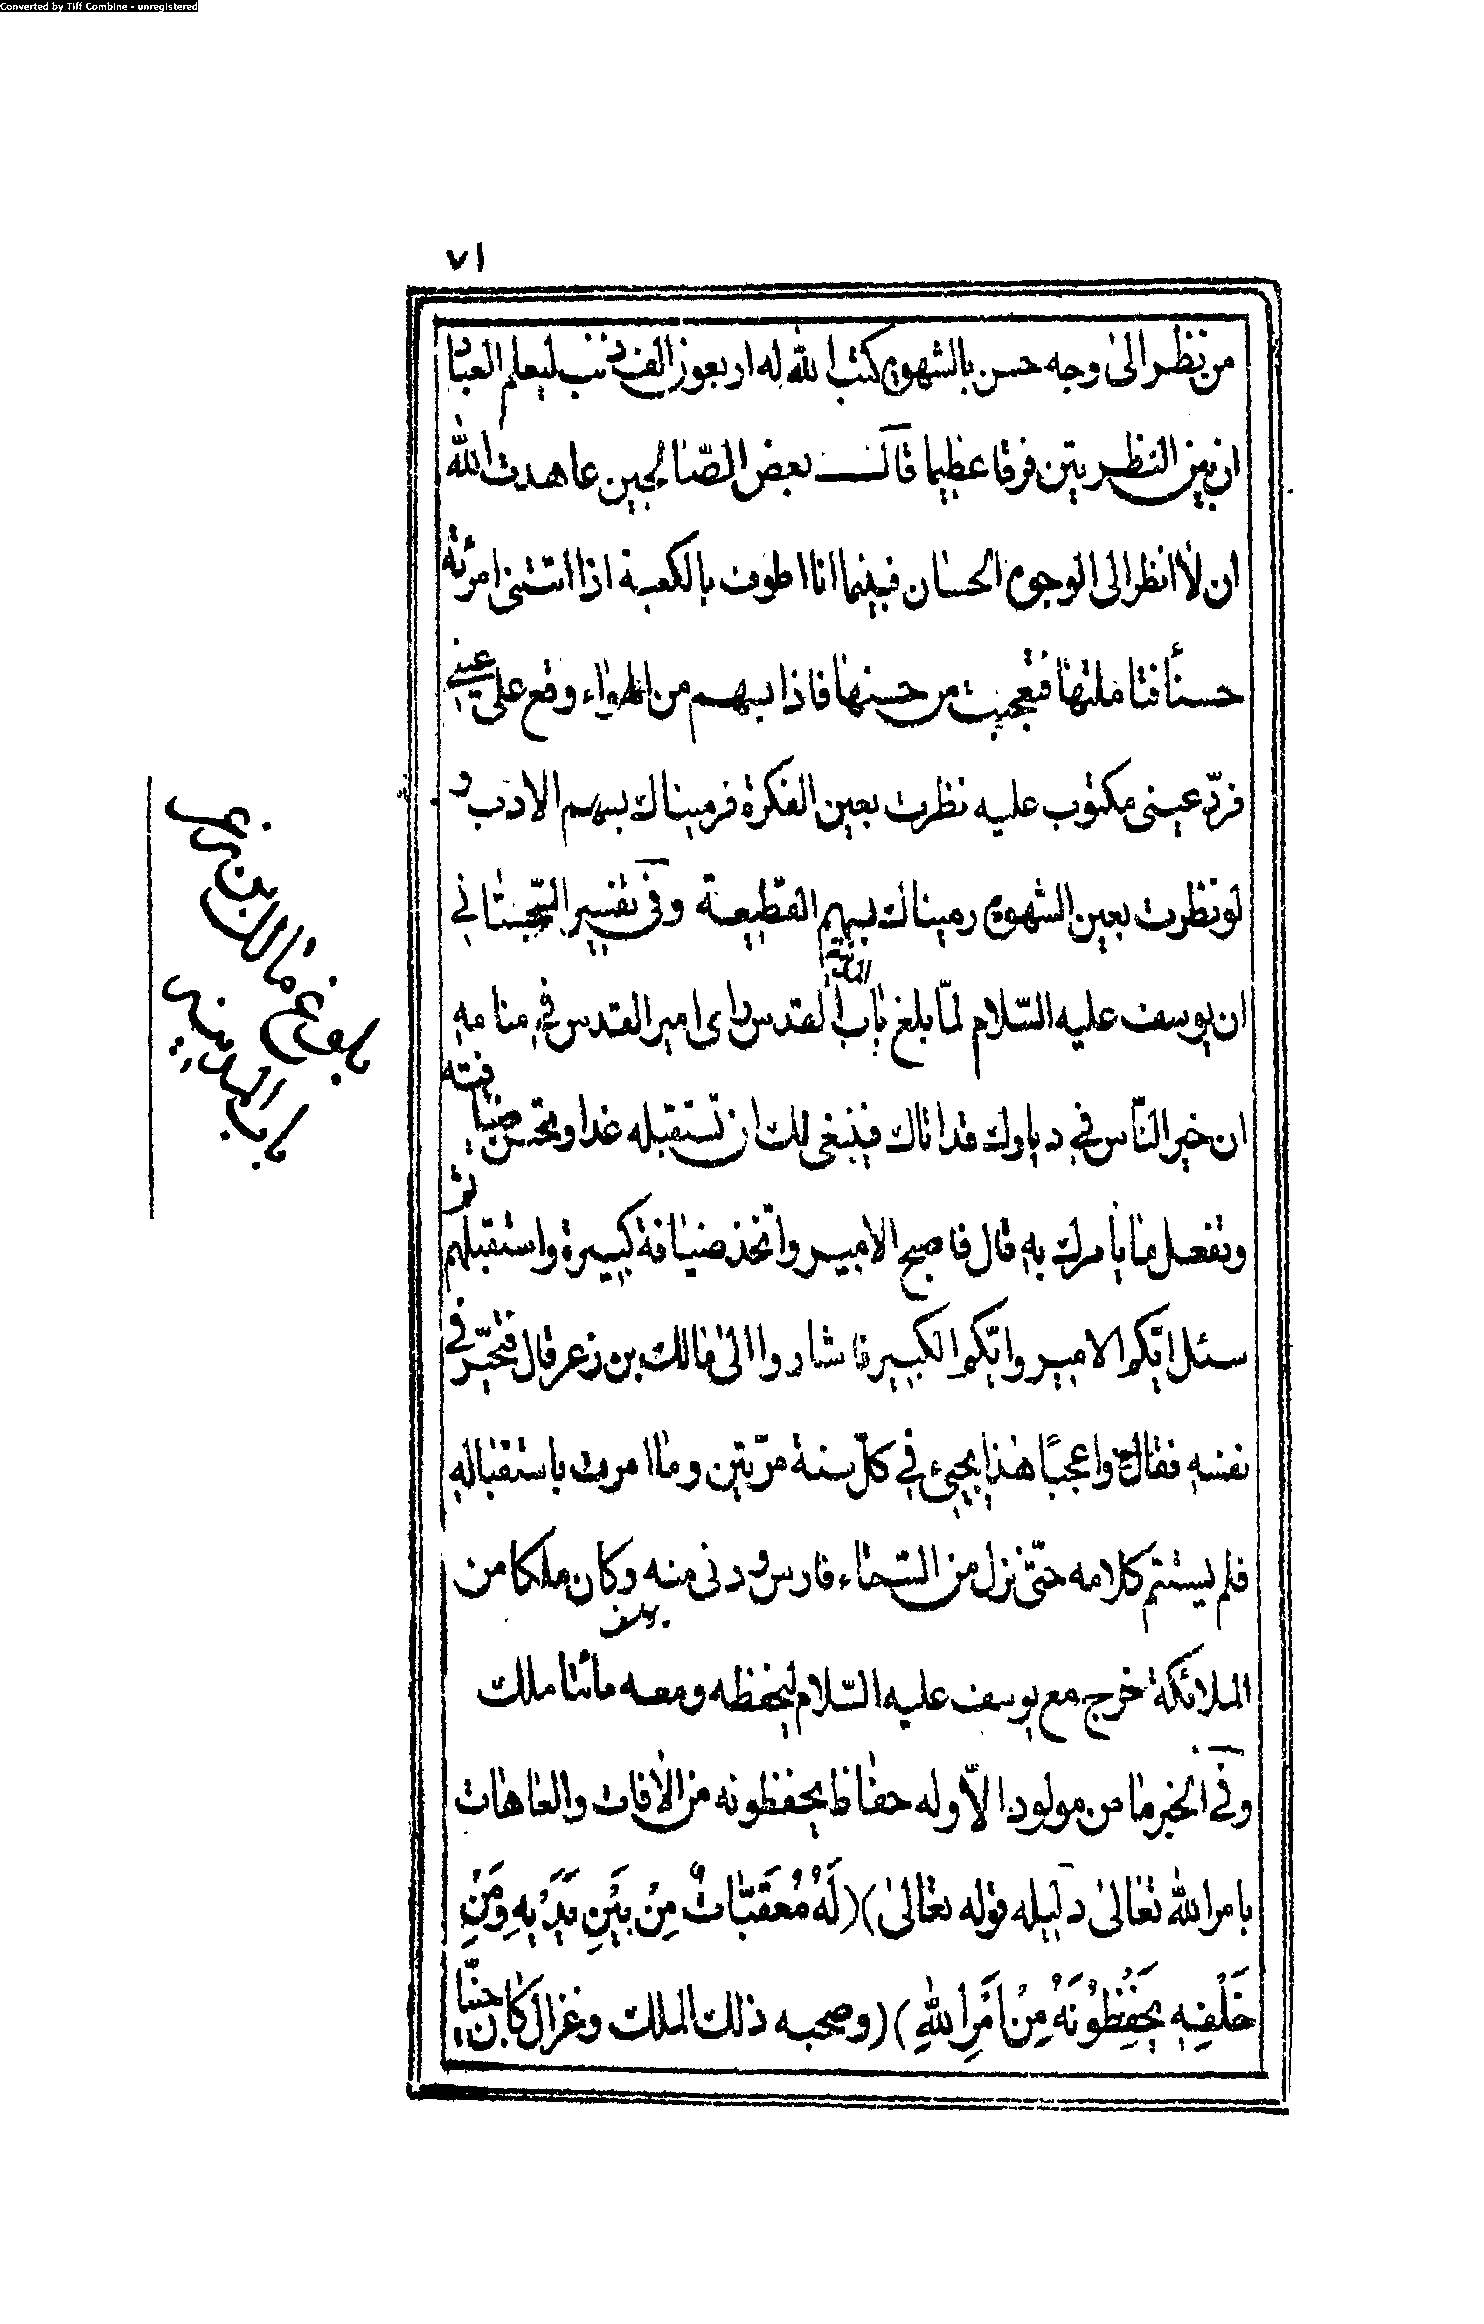 Converted by Tiff Combine - unregistered
٧١
من نظر الىٰ وجه حسن بالشهوة كتب الله له اربعون الف ذنب ليعلم العباد
ان بين النظريتين فرقا عظيما قال بعض الصّالحين عاهدت الله
ان لا انظر الى الوجوه الحسان فبينما انا اطوف بالكعبة اذا اتتنى امرئة
حسنأ فتاملتها فتعجبت من حسنها فاذا بسهم من الهواء وقع على عينى
فردّ عينى مكتوب عليه نظرت بعين الفكرة فرميناك بسهم الادب و
لو نظرت بعين الشهوة رميناك بسهم القطيعة وفى تفسير السّجستانى
ان يوسف عليه السّلام لمّا بلغ باب القدس راى امير القدس فى منامه
ان خير النّاس فى ديارك قد اتاك فينبغى لك ان تستقبله غدا وتحسن ضيافته
وتفعل ما يأمرك به قال فاصبح الامير واتّخذ ضيافة كبيرة واستقبلهم ثم
سئل ايّكم الامير وايّكم الكبير فاشاروا الىٰ مالك بن زعر قال فتحيّر فى
نفسه فقال واعجبًا هذا يجيىء فى كلّ سنة مرّتين وما امرت باستقباله
فلم يستتم كلامه حتّى نزل من السّماء فارس ودنى منه وكان ملكا من
الملائكة خرج مع يوسف عليه السّلام ليحفظه ومعه مائتا ملك
وفى الخبر ما من مولود الاّ وله حفّاظ يحفظونه من الآفات والعاهات
بامر الله تعالىٰ دليله قوله تعالىٰ (لَهُ مُعَقّبَاتٌ مِنْ بَيْنِ يَدَيْهِ وَمِنْ
خَلْفِهِ يَحْفَظُونَهُ مِنْ اَمْرِ اللهِ) وصحبه ذلك الملك وغزال كان حبيبا
بلوغ مالك بن زعر
باب المدينه